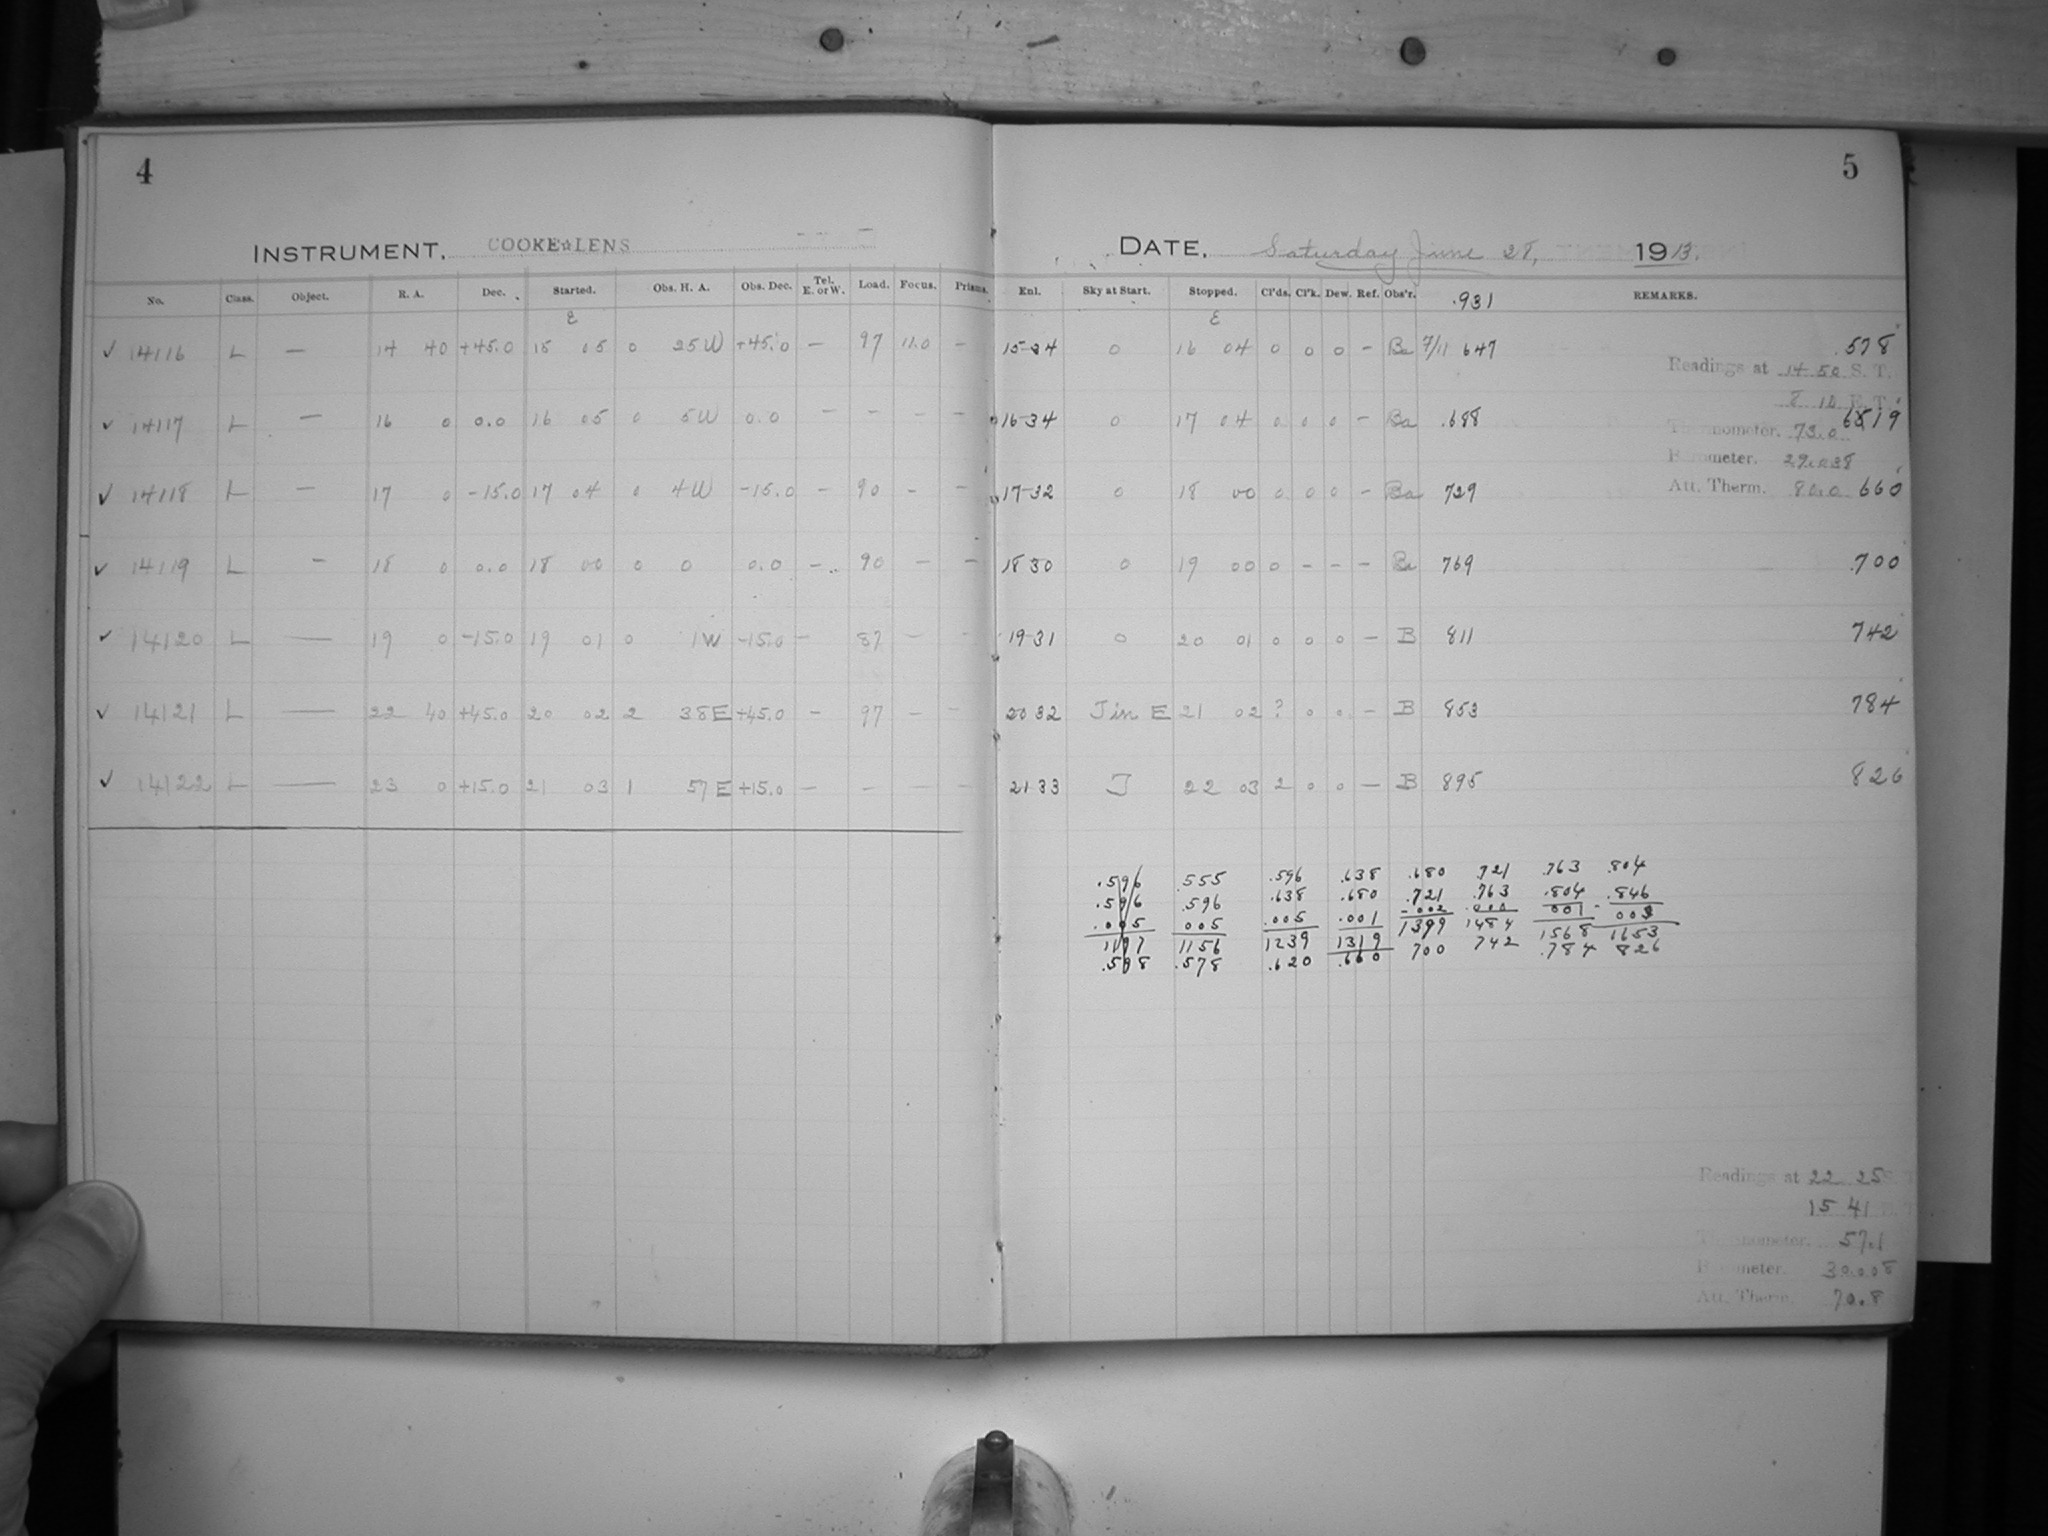 4
INSTRUMENT, COOKE☆LENS
No. Class. Object. R. A. Dec. Started. Obs. H. A. Obs. Dec. Tel. E. or W. Load. Focus. Prisms.
ε
✓ 14116 L — 14 40 +45.0 15 05 0 25W +45.0 — 97 11.0 —
✓ 14117 L — 16 0 0.0 16 05 0 5W 0.0 — — — —
✓ 14118 L — 17 0 -15.0 17 04 0 4W -15.0 — 90 — —
✓ 14119 L — 18 0 0.0 18 00 0 0 0.0 — 90 — —
✓ 14120 L — 19 0 -15.0 19 01 0 1W -15.0 — 87 — —
✓ 14121 L — 22 40 +45.0 20 02 2 38E +45.0 — 97 — —
✓ 14122 L — 23 0 +15.0 21 03 1 57E +15.0 — — — —
5
DATE, Saturday June 28, 1913.
Enl. Sky at Start. Stopped. Cl'ds. Cl'k. Dew. Ref. Obs'r. .931 REMARKS.
ε
15-34 0 16 04 0 0 0 — Ba 7/11 647 .578
Readings at 14 50 S. T.
8 10 E. T.
16-34 0 17 04 0 0 0 — Ba .688 619
Thermometer. 73.0
Barometer. 29.038
Att. Therm. 80.0
17-32 0 18 00 0 0 0 — Ba 729 660
18 30 0 19 00 0 — — — Ba 769 .700
19-31 0 20 01 0 0 0 — B 811 742
20 32 J in E 21 02 ? 0 0 — B 853 784
21 33 J 22 03 2 0 0 — B 895 826
.596 .555 .596 .638 .680 .721 .763 .804
.596 .596 .638 .680 .721 .763 .804 .846
.005 005 .005 .001 -.002 .000 001 003
1197 1156 1239 1319 1399 1484 1568 1653
.598 .578 .620 .660 700 742 .784 826
Readings at 22 25 S. T.
15 41 E. T.
Thermometer. 57.1
Barometer. 30.008
Att. Therm. 70.8